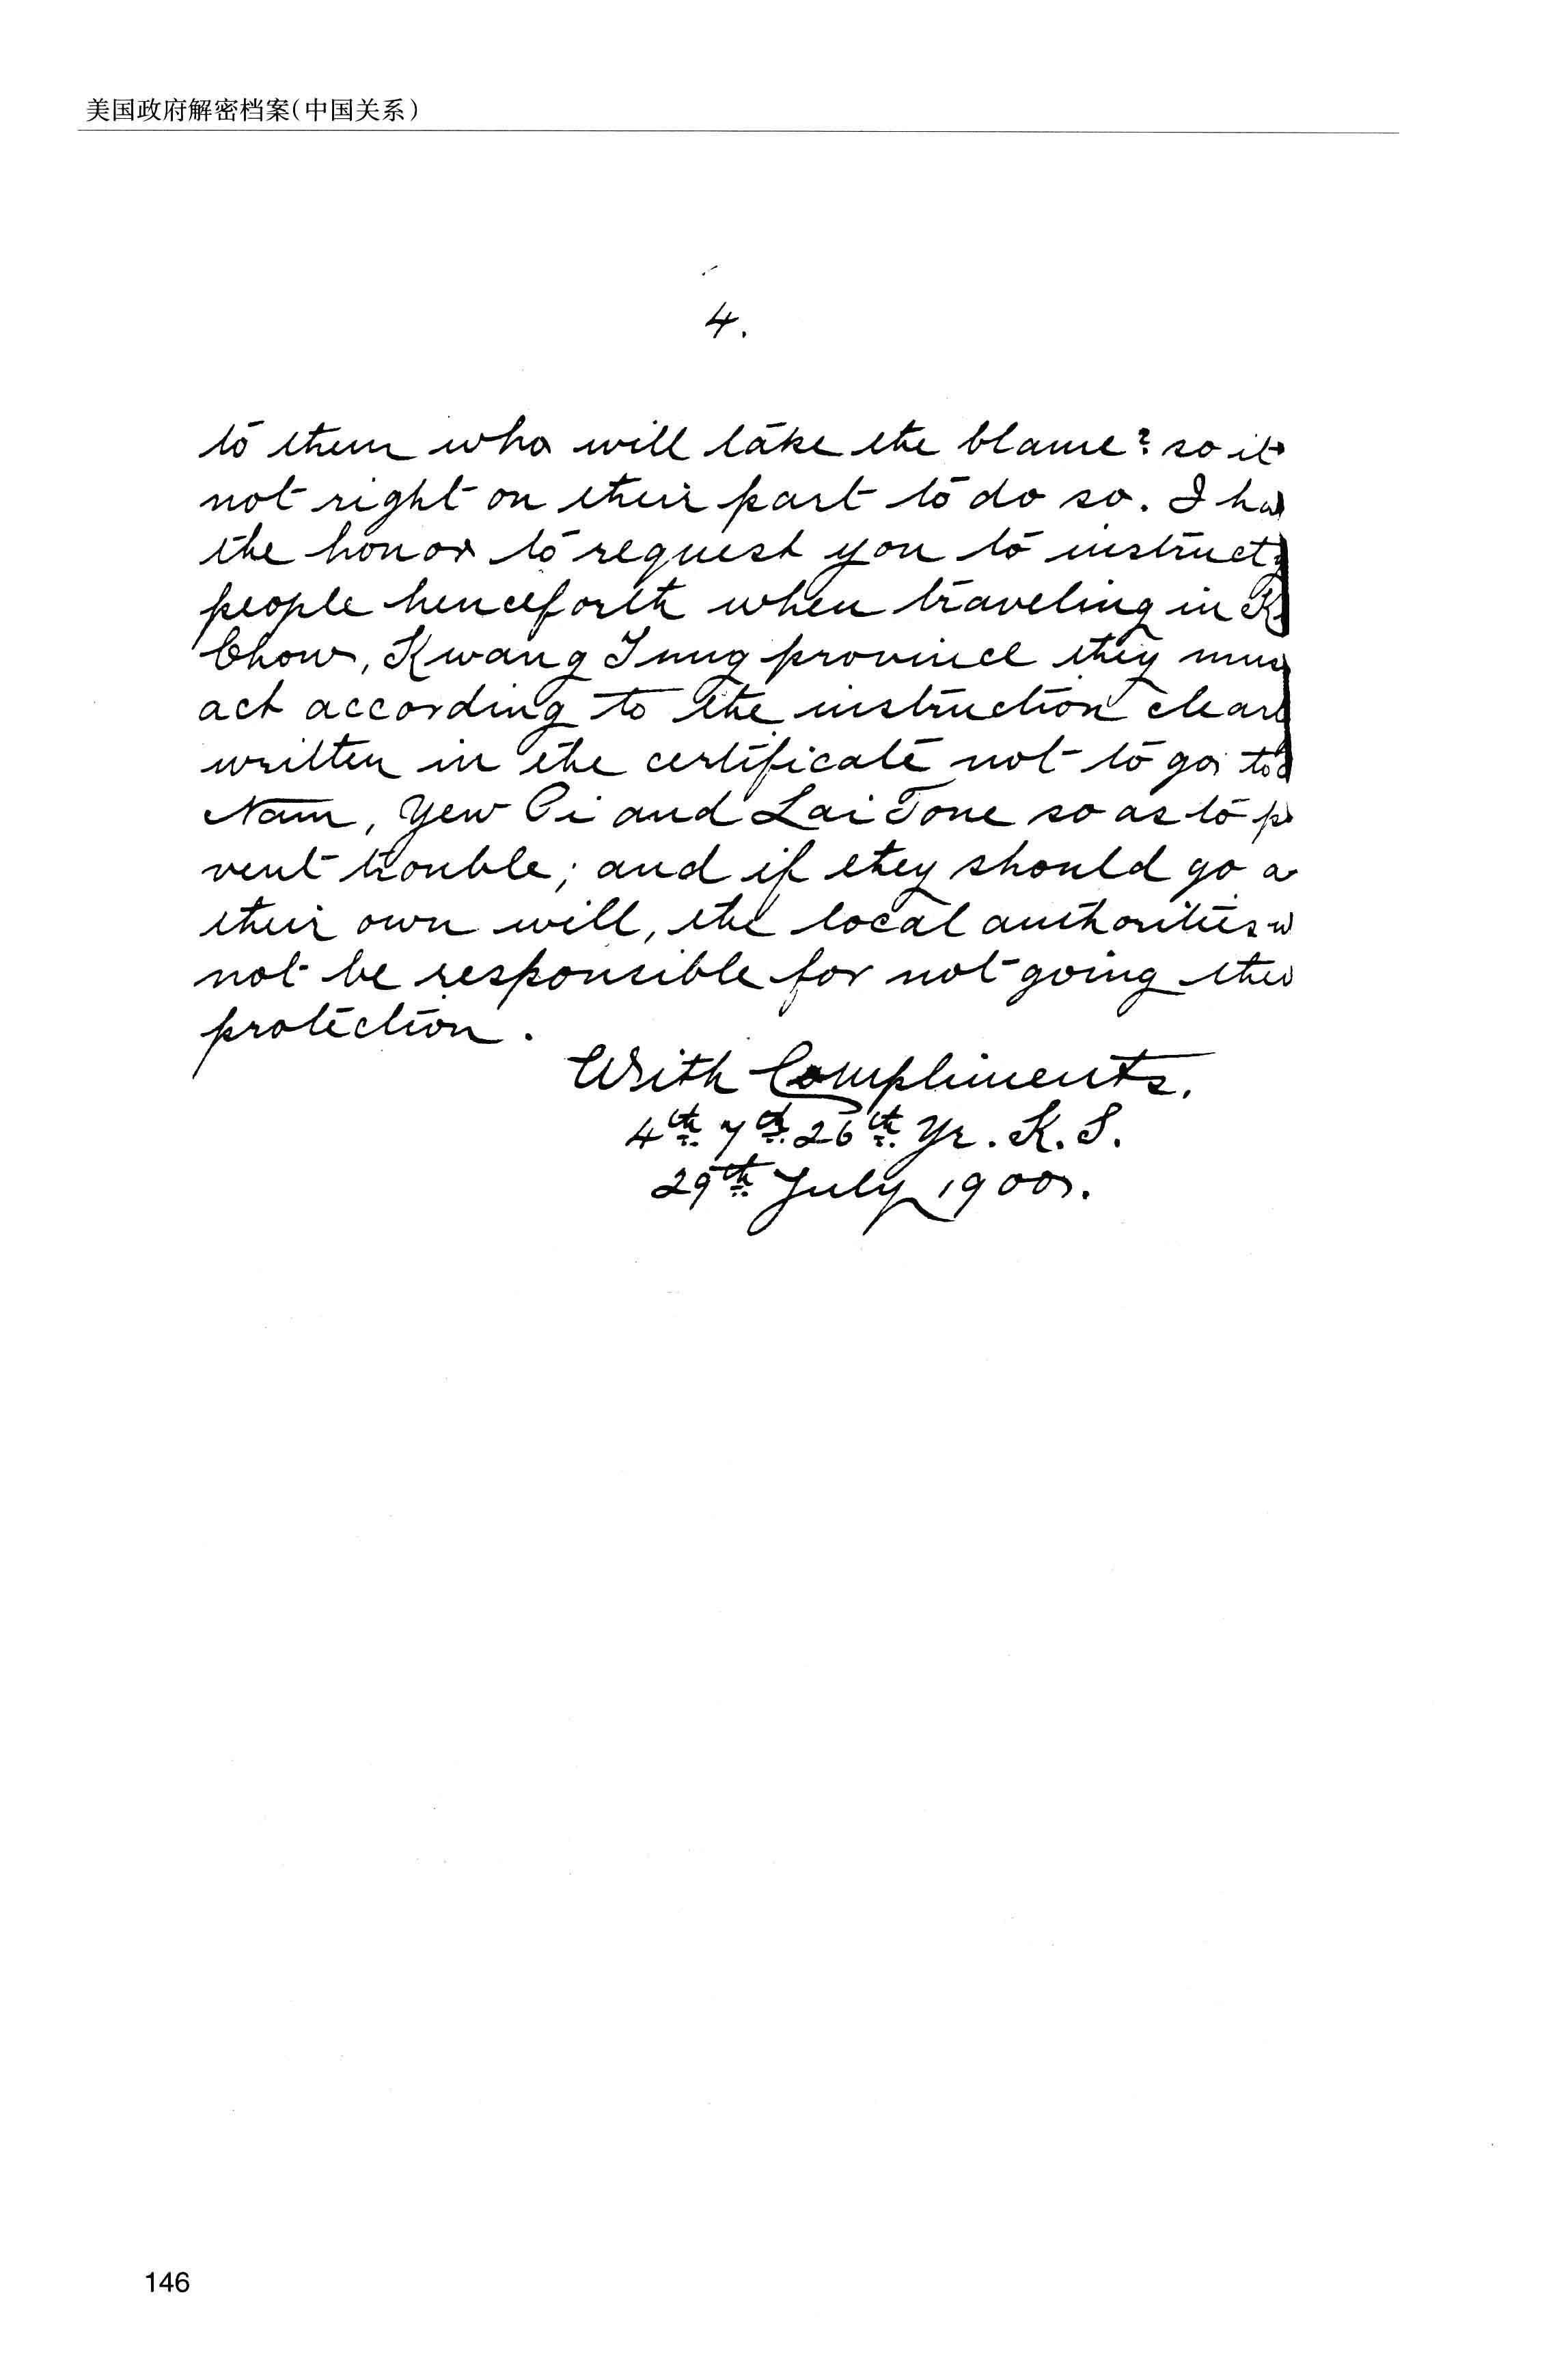 美国政府解密档案(中国关系)
4.
to them who will take the blame? so it
not right on their part to do so. I ha
the honor to request you to instruct
people henceforth when traveling in K
Chow, Kwang Tung province they mus
act according to the instruction clearl
written in the certificate not to go to
Nam, Yew Pi and Lai Tone so as to p
vent trouble; and if they should go a
their own will, the local authorities w
not be responsible for not going the
protection.
With Compliments.
4th. 7th. 26th. Yr. K. S.
29th July 1900.
146